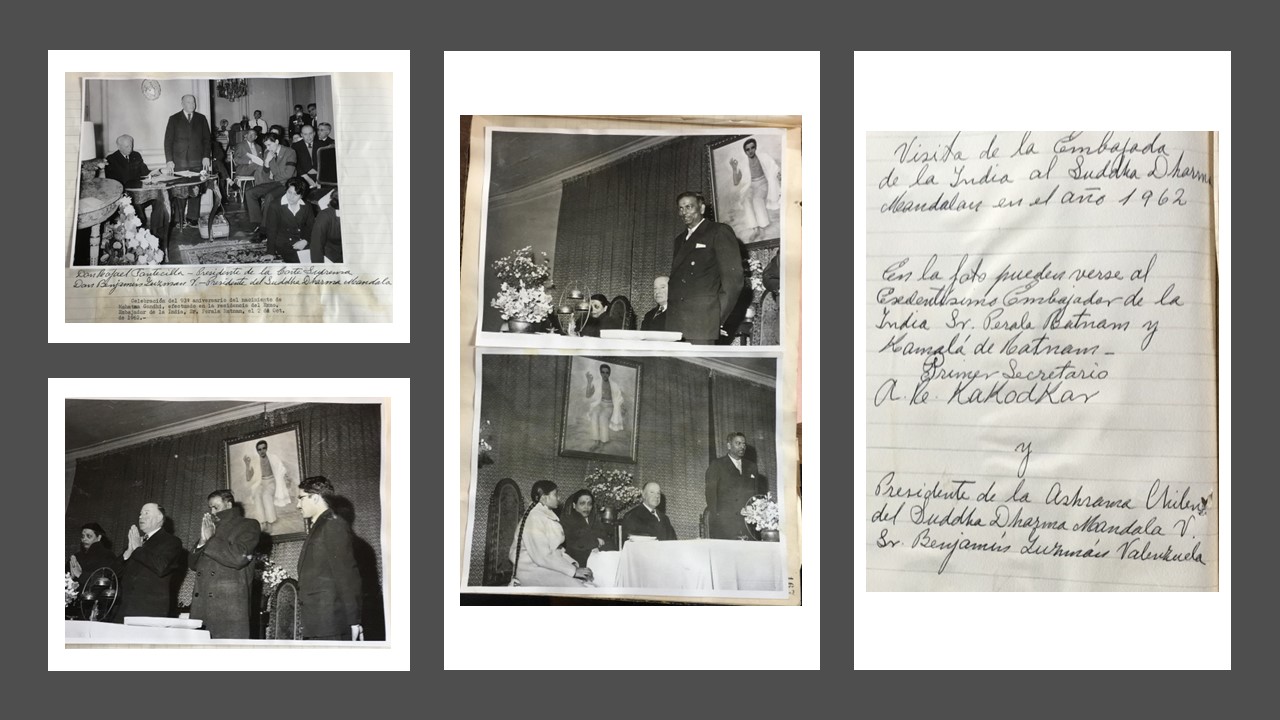 Don Rafael Fontecilla - Presidente de la Corte Suprema
Don Benjamín Guzman V. - Presidente del Suddha Dharma Mandala
Celebración del 93° aniversario del nacimiento de
Mahatma Gandhi, efectuado en la residencia del Exmo.
Embajador de la India, Dr. Perala Ratnam, el 2 de Oct.
de 1962.-
Visita de la Embajada
de la India al Suddha Dharma
Mandalan en el año 1962
En la foto pueden verse al
Exelentísimo Embajador de la
India Sr. Perala Ratnam y
Kamala de Ratnam -
Primer Secretario
A. Ke. KaKodKar
y
Presidente de la Ashrama Chilena
del Suddha Dharma Mandala V.
Sr. Benjamín Guzmán Valenzuela